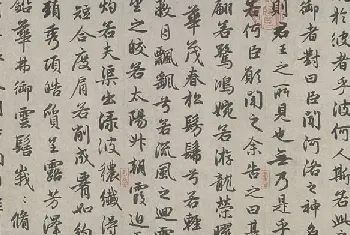 於彼者乎彼何人斯若此
御者對曰臣聞河洛之神名
則君王之所見也無乃是乎
若何臣願聞之余告之曰其
翩若驚鴻婉若游龍榮曜
華茂春松髣髴兮若輕
蔽月飄飄兮若流風之迴雪
望之皎若太陽升朝霞迫
灼若夫渠出淥波穠纖得
短合度肩若削成腰如約
頸秀項皓質呈露芳澤
鉛華弗御雲髻峩〻脩